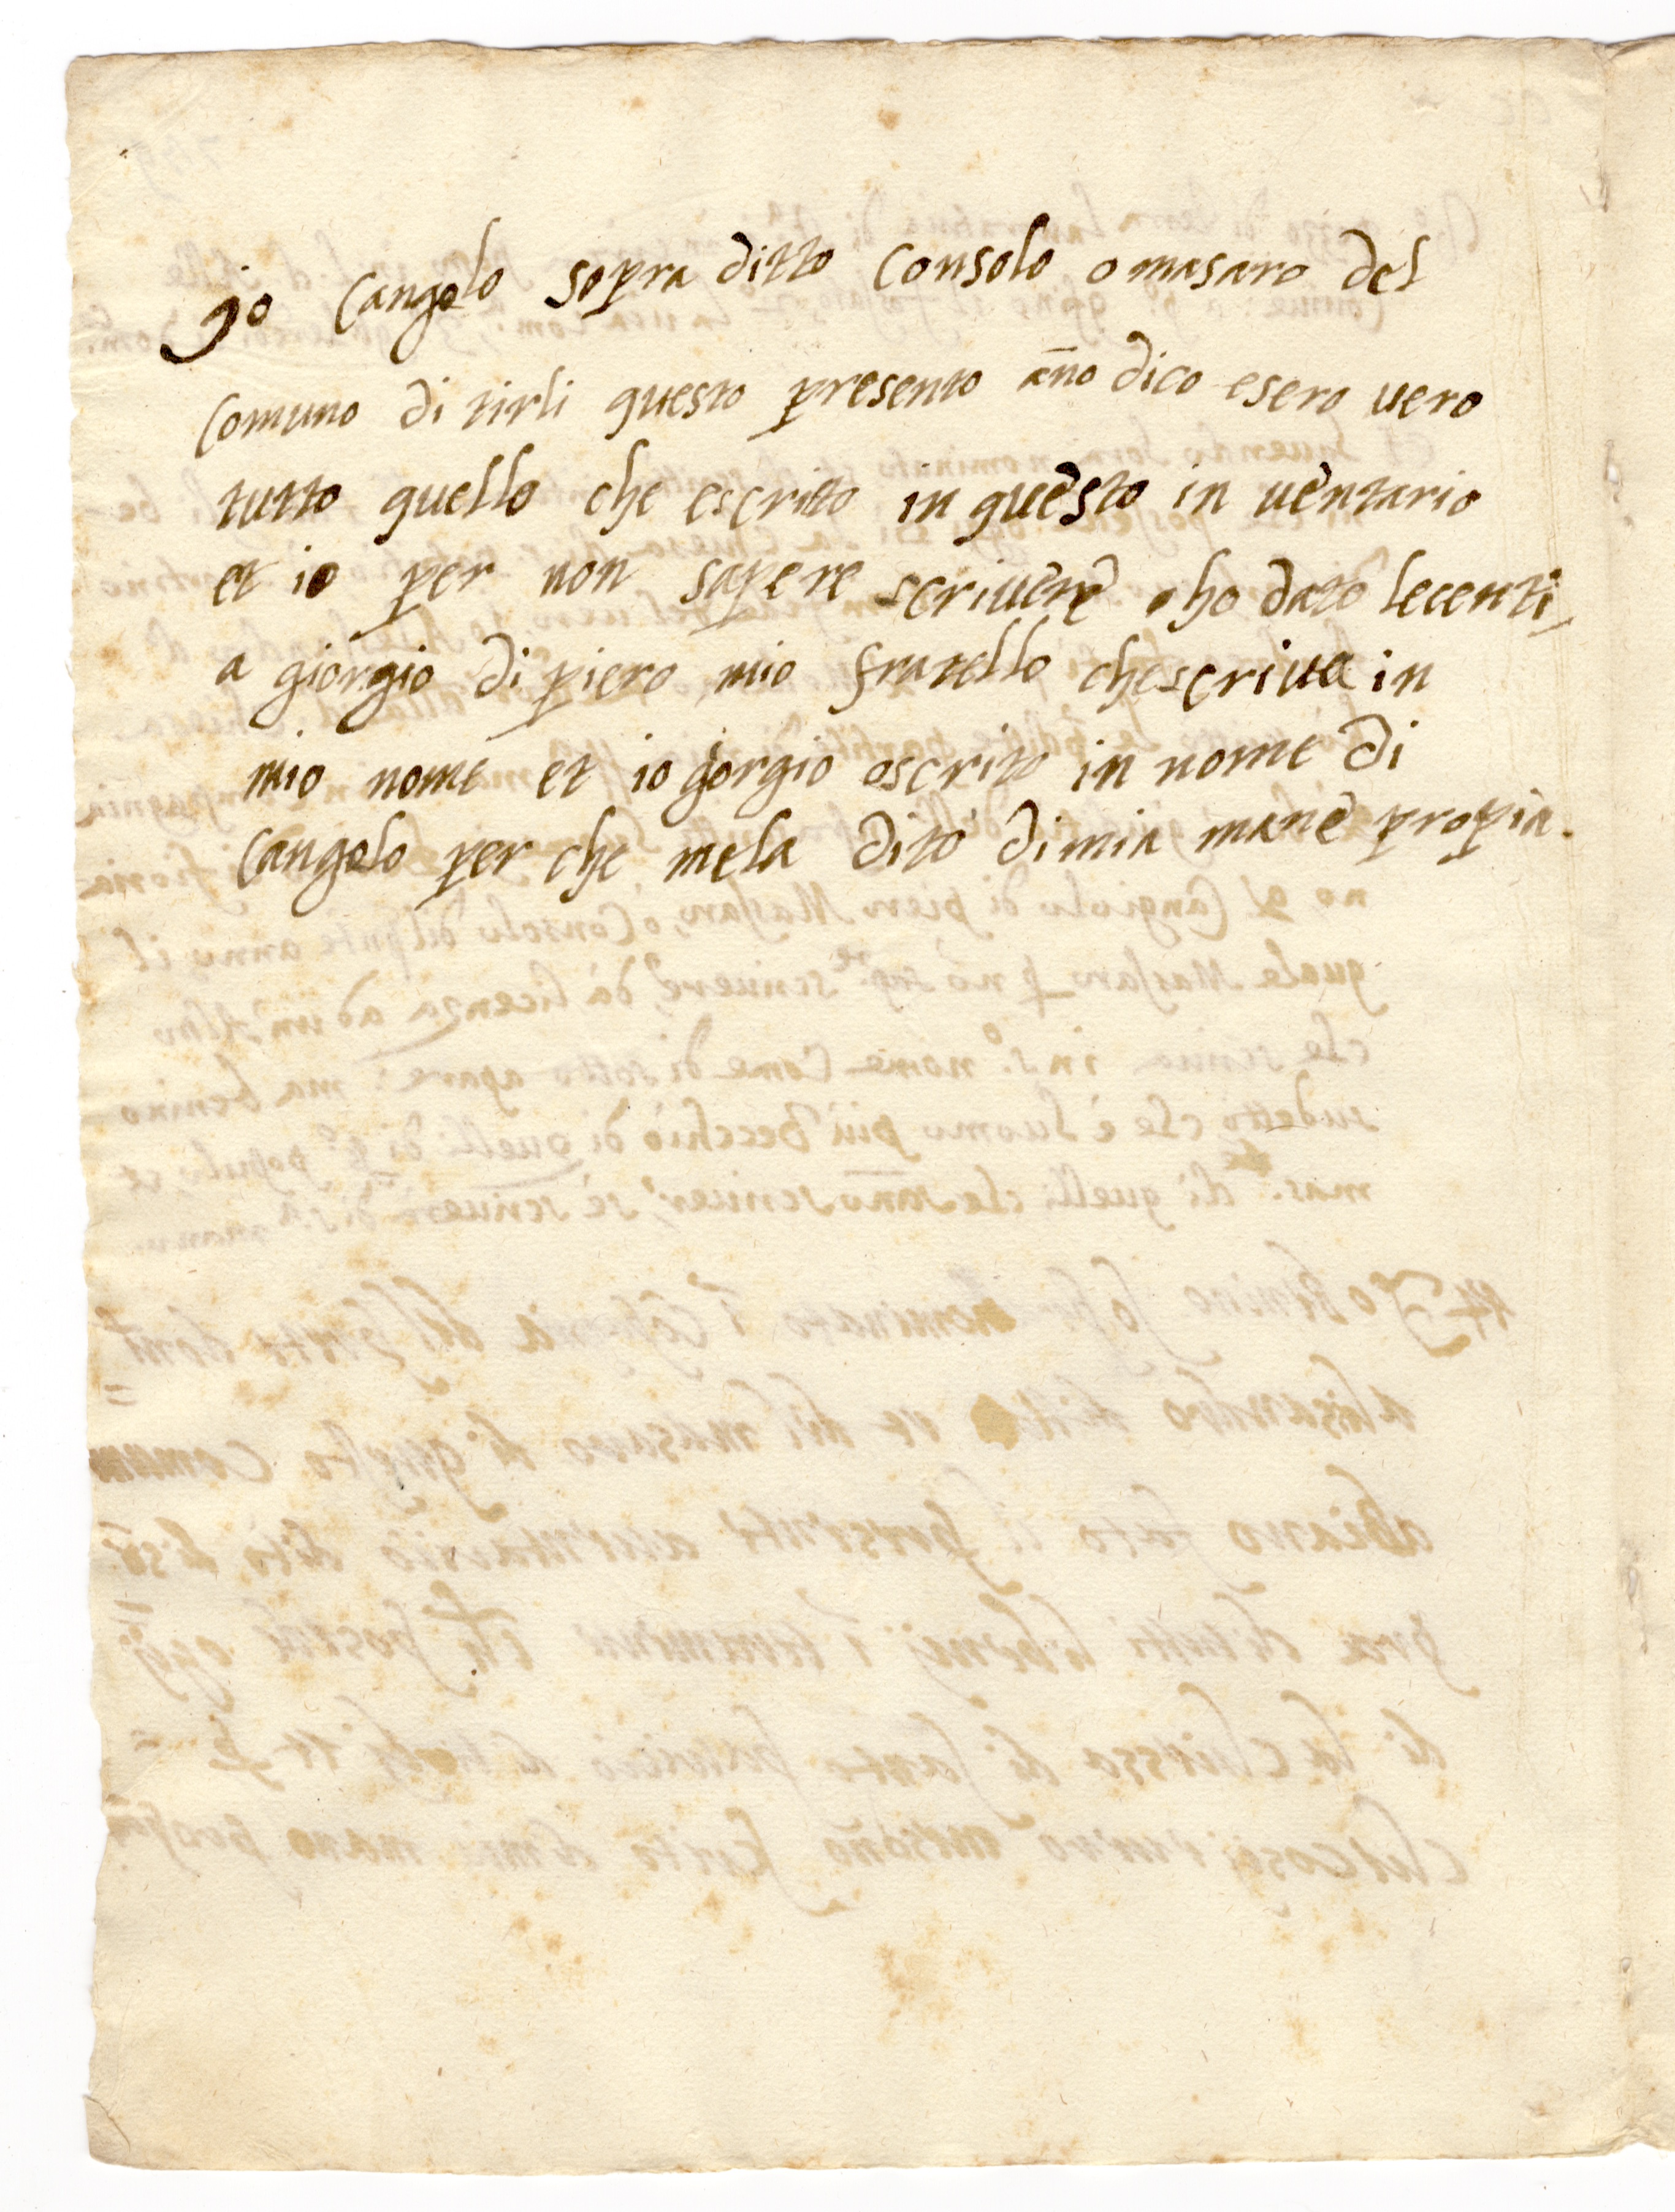 Jo Cangelo sopra ditto Consolo o masaro del
Comuno di tirli questo presento año dico esero vero
tutto quello che escritto in questo in ventario
et io per non sapere scrivere ho dato lecenti
a giorgio di piero mio fratello chescriva in
mio nome et io gorgio oscrito in nome di
Cangelo per che mela dito di mia mane propia.